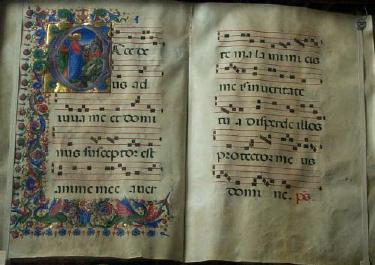 Ecce de
us ad
iuua me et domi
nus susceptor est
anime mee auer
te mala inimicis
meis in ueritate
tua disperde illos
protector me us
domi ne. ps.